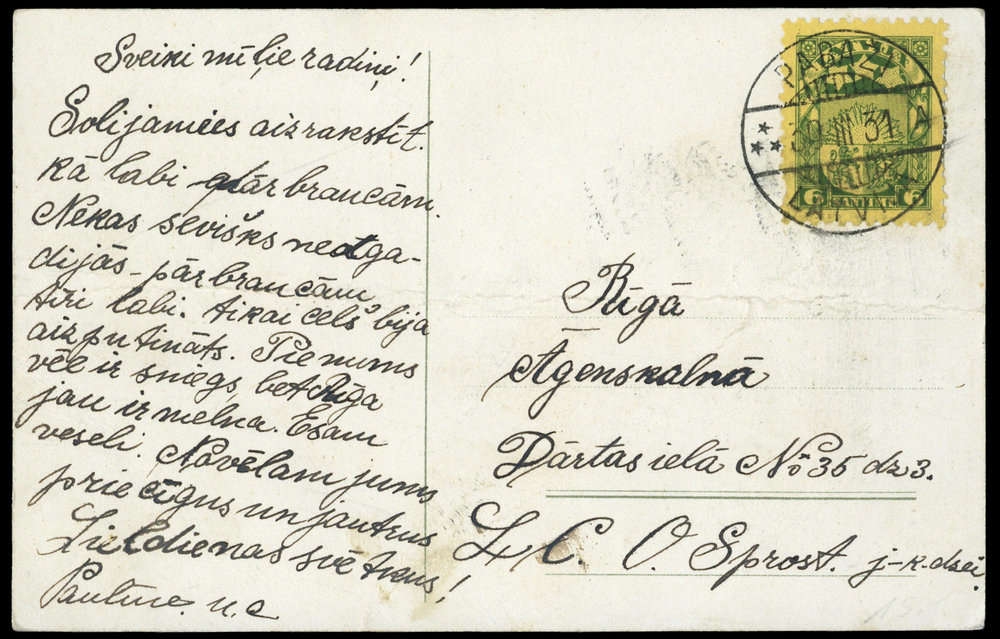 Sveiki mīļie radiņi!
Solijamies aizrakstīt.
kā labi pārbraucām.
Nekas sevišķs neatga-
dijās - pārbraucām
tīri labi. tikai ceļš bija
aizputināts. Pie mums
vēl ir sniegs, bet Rīgā
jau ir melna. Esam
veseli. Novēlam jums
priecīgus un jautrus
Lieldienas svētkus!
Pauline. u.c
LATVIJA
30 III 31
6 SANTIMS 6
Rīgā
Āgenskalnā
Dārtas ielā No 35 dz 3.
L. C. O. Sprost. j-k. dzei.